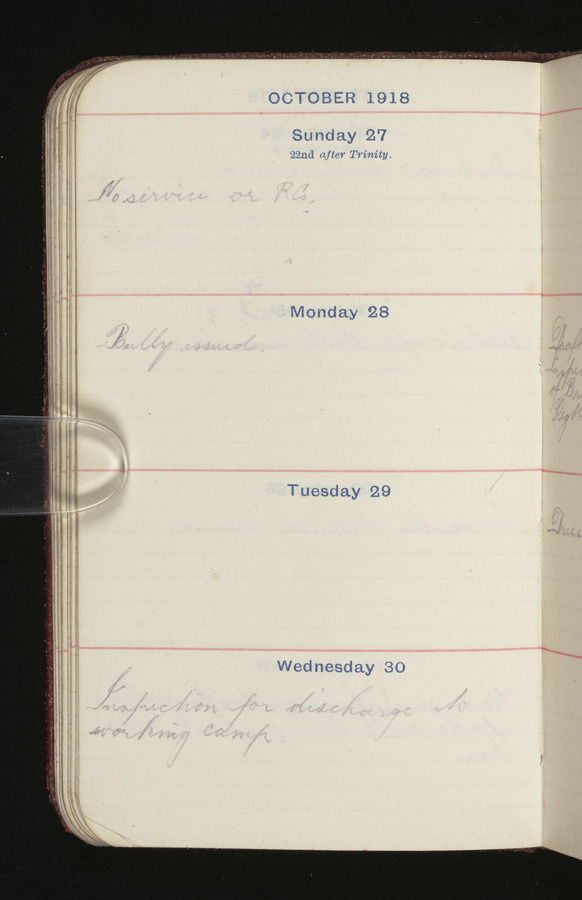 OCTOBER 1918
Sunday 27
22nd after Trinity.
No service or R.Cs.
Monday 28
Bully issued.
Tuesday 29
Wednesday 30
Inspection for discharge to
working camp.